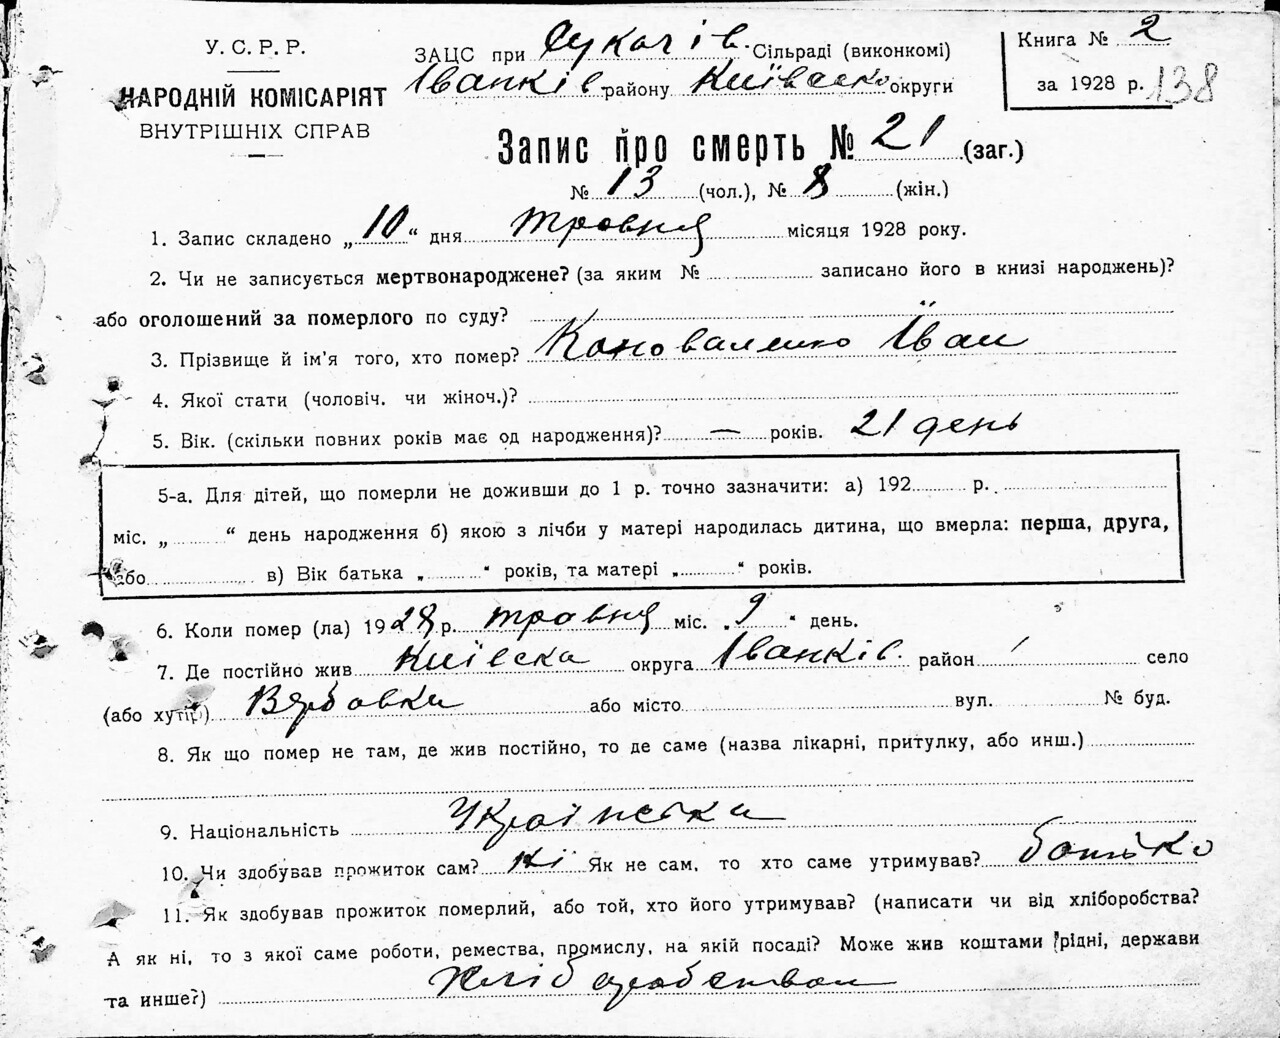 У. С. Р. Р.
НАРОДНІЙ КОМІСАРІЯТ
ВНУТРІШНІХ СПРАВ
ЗАЦС при Сукачів. Сільраді (виконкомі)
Іванків району Київсько округи
Книга № 2
за 1928 р. 138
Запис про смерть № 21 (заг.)
№ 13 (чол.), № 8 (жін.)
1. Запис складено „10“ дня травня місяця 1928 року.
2. Чи не записується мертвонароджене? (за яким № записано його в книзі народжень)?
або оголошений за померлого по суду?
3. Прізвище й ім'я того, хто помер? Коноваленко Іван
4. Якої стати (чоловіч. чи жіноч.)?
5. Вік. (скільки повних років має од народження)? — років. 21 день
5-а. Для дітей, що померли не доживши до 1 р. точно зазначити: а) 192 р.
міс. „ “ день народження б) якою з лічби у матері народилась дитина, що вмерла: перша, друга,
або в) Вік батька „ “ років, та матері „ “ років.
6. Коли помер (ла) 1928 р. травня міс. „9“ день.
7. Де постійно жив Київска округа Іванків. район село
(або хутір) Вербовка або місто вул. № буд.
8. Як що помер не там, де жив постійно, то де саме (назва лікарні, притулку, або инш.)
9. Національність Українська
10. Чи здобував прожиток сам? ні Як не сам, то хто саме утримував? батько
11. Як здобував прожиток померлий, або той, хто його утримував? (написати чи від хліборобства?
А як ні, то з якої саме роботи, ремества, промислу, на якій посаді? Може жив коштами рідні, держави
та инше?) Хліборобством